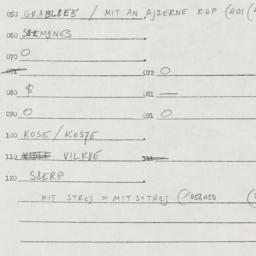 050 GRABLIES / MIT AN AJZERNE KOP (401
060 SEMYNES
070 O
071 072 O
080 $ 081 —
090 O 091 O
100 KOSE / KOSYE
110 VILKYE
120 SIERP
MIT STREJ = MIT SOTREJ (1050050